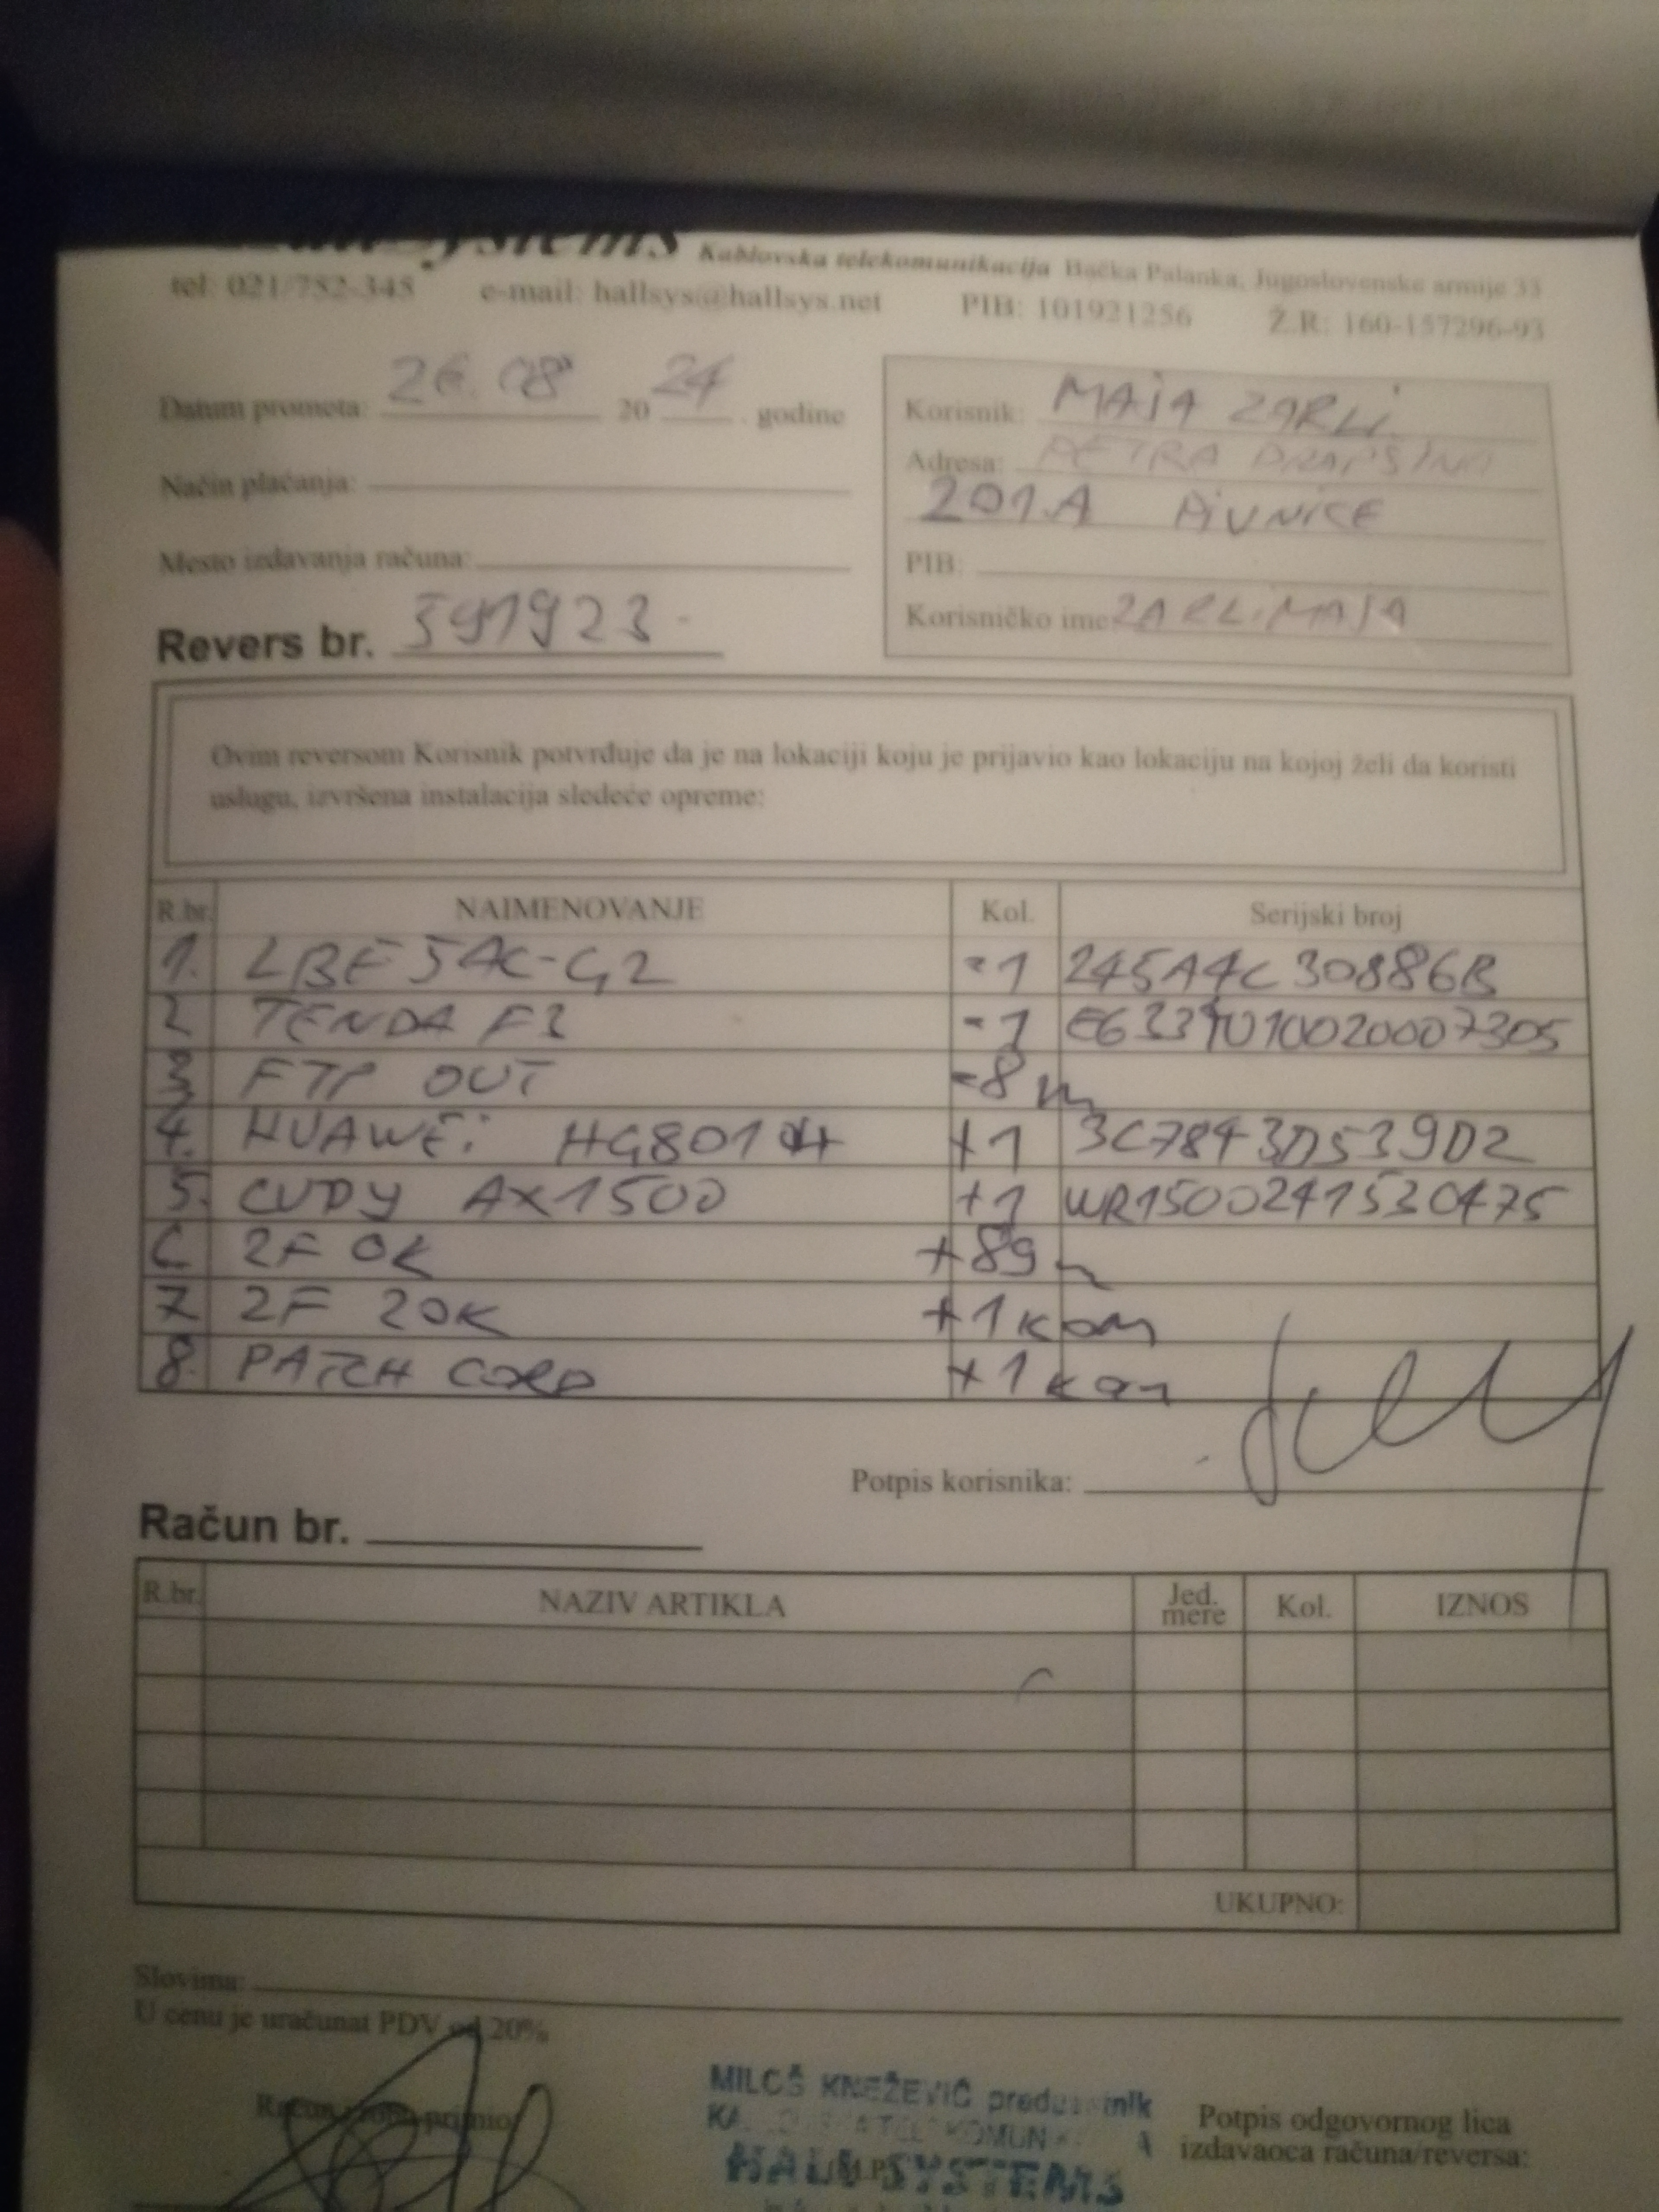 Kablovska telekomunikacija Bačka Palanka, Jugoslovenske armije 33
tel: 021/752-345 e-mail: hallsys@hallsys.net PIB: 101921256 Ž.R: 160-157296-93
Datum prometa: 26.08 20 24. godine
Korisnik: MAJA ZARLI
Adresa: PETRA DRAPŠINA
201A PIVNICE
Način plaćanja:
Mesto izdavanja računa:
PIB:
Korisničko ime: ZARLI.MAJA
Revers br. 591923
Ovim reversom Korisnik potvrđuje da je na lokaciji koju je prijavio kao lokaciju na kojoj želi da koristi
uslugu, izvršena instalacija sledeće opreme:
R.br. NAIMENOVANJE Kol. Serijski broj
1. LBE 5AC-G2 -1 245A4C30886B
2 TENDA F3 -1
3 FTP OUT -8 m
4. HUAWEi HG8010H +1 3C7843D539D2
5. CUDY AX1500 +1 WR1500241530475
6 2F OK +89 m
7 2F 20K +1 kom
8. PATCH CORD +1 kom
Potpis korisnika:
Račun br.
R.br. NAZIV ARTIKLA Jed. mere Kol. IZNOS
UKUPNO:
Slovima:
U cenu je uračunat PDV od 20%
MILOŠ KNEŽEVIĆ
SYSTEMS
Potpis odgovornog lica
izdavaoca računa/reversa: